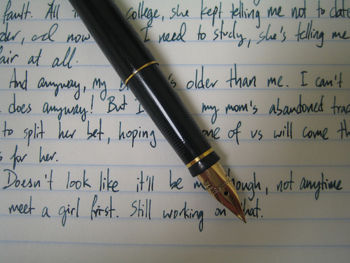 fault. All college, she kept telling me not to date
and now I need to study, she's telling me
fair at all.
And anyway, my older than me. I can't
does anyway! But I my mom's abandoned
to split her bet, hoping one of us will come
s for her.
Doesn't look like it'll be though, not anytime
meet a girl first. Still working on that.